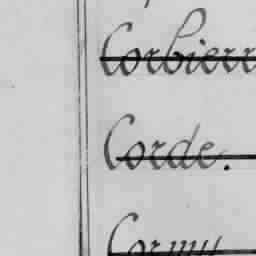 Corbierr
Corde.
Cormu